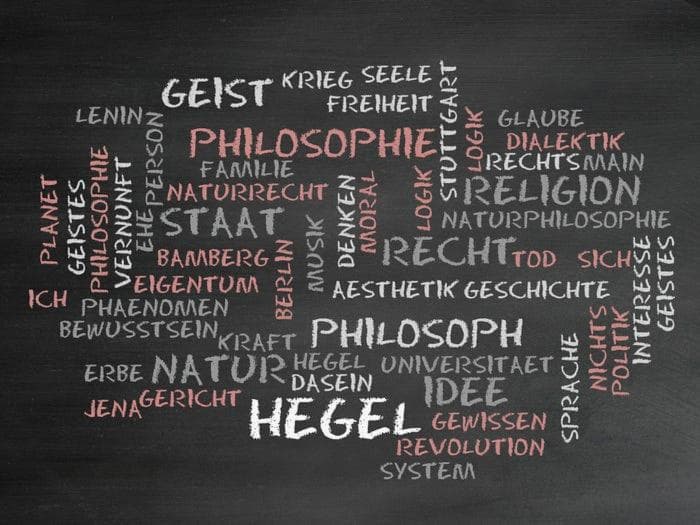 GEIST
KRIEG
SEELE
FREIHEIT
STUTTGART
LENIN
PERSON
PHILOSOPHIE
LOGIK
GLAUBE
DIALEKTIK
RECHTS
MAIN
FAMILIE
NATURRECHT
PLANET
GEISTES
PHILOSOPHIE
VERNUNFT
EHE
STAAT
MUSIK
DENKEN
MORAL
LOGIK
RELIGION
NATURPHILOSOPHIE
BAMBERG
BERLIN
RECHT
TOD
SICH
INTERESSE
GEISTES
EIGENTUM
AESTHETIK
GESCHICHTE
ICH
PHAENOMEN
BEWUSSTSEIN
KRAFT
PHILOSOPH
NICHTS
POLITIK
SPRACHE
ERBE
NATUR
HEGEL
UNIVERSITAET
DASEIN
IDEE
JENA
GERICHT
HEGEL
GEWISSEN
REVOLUTION
SYSTEM